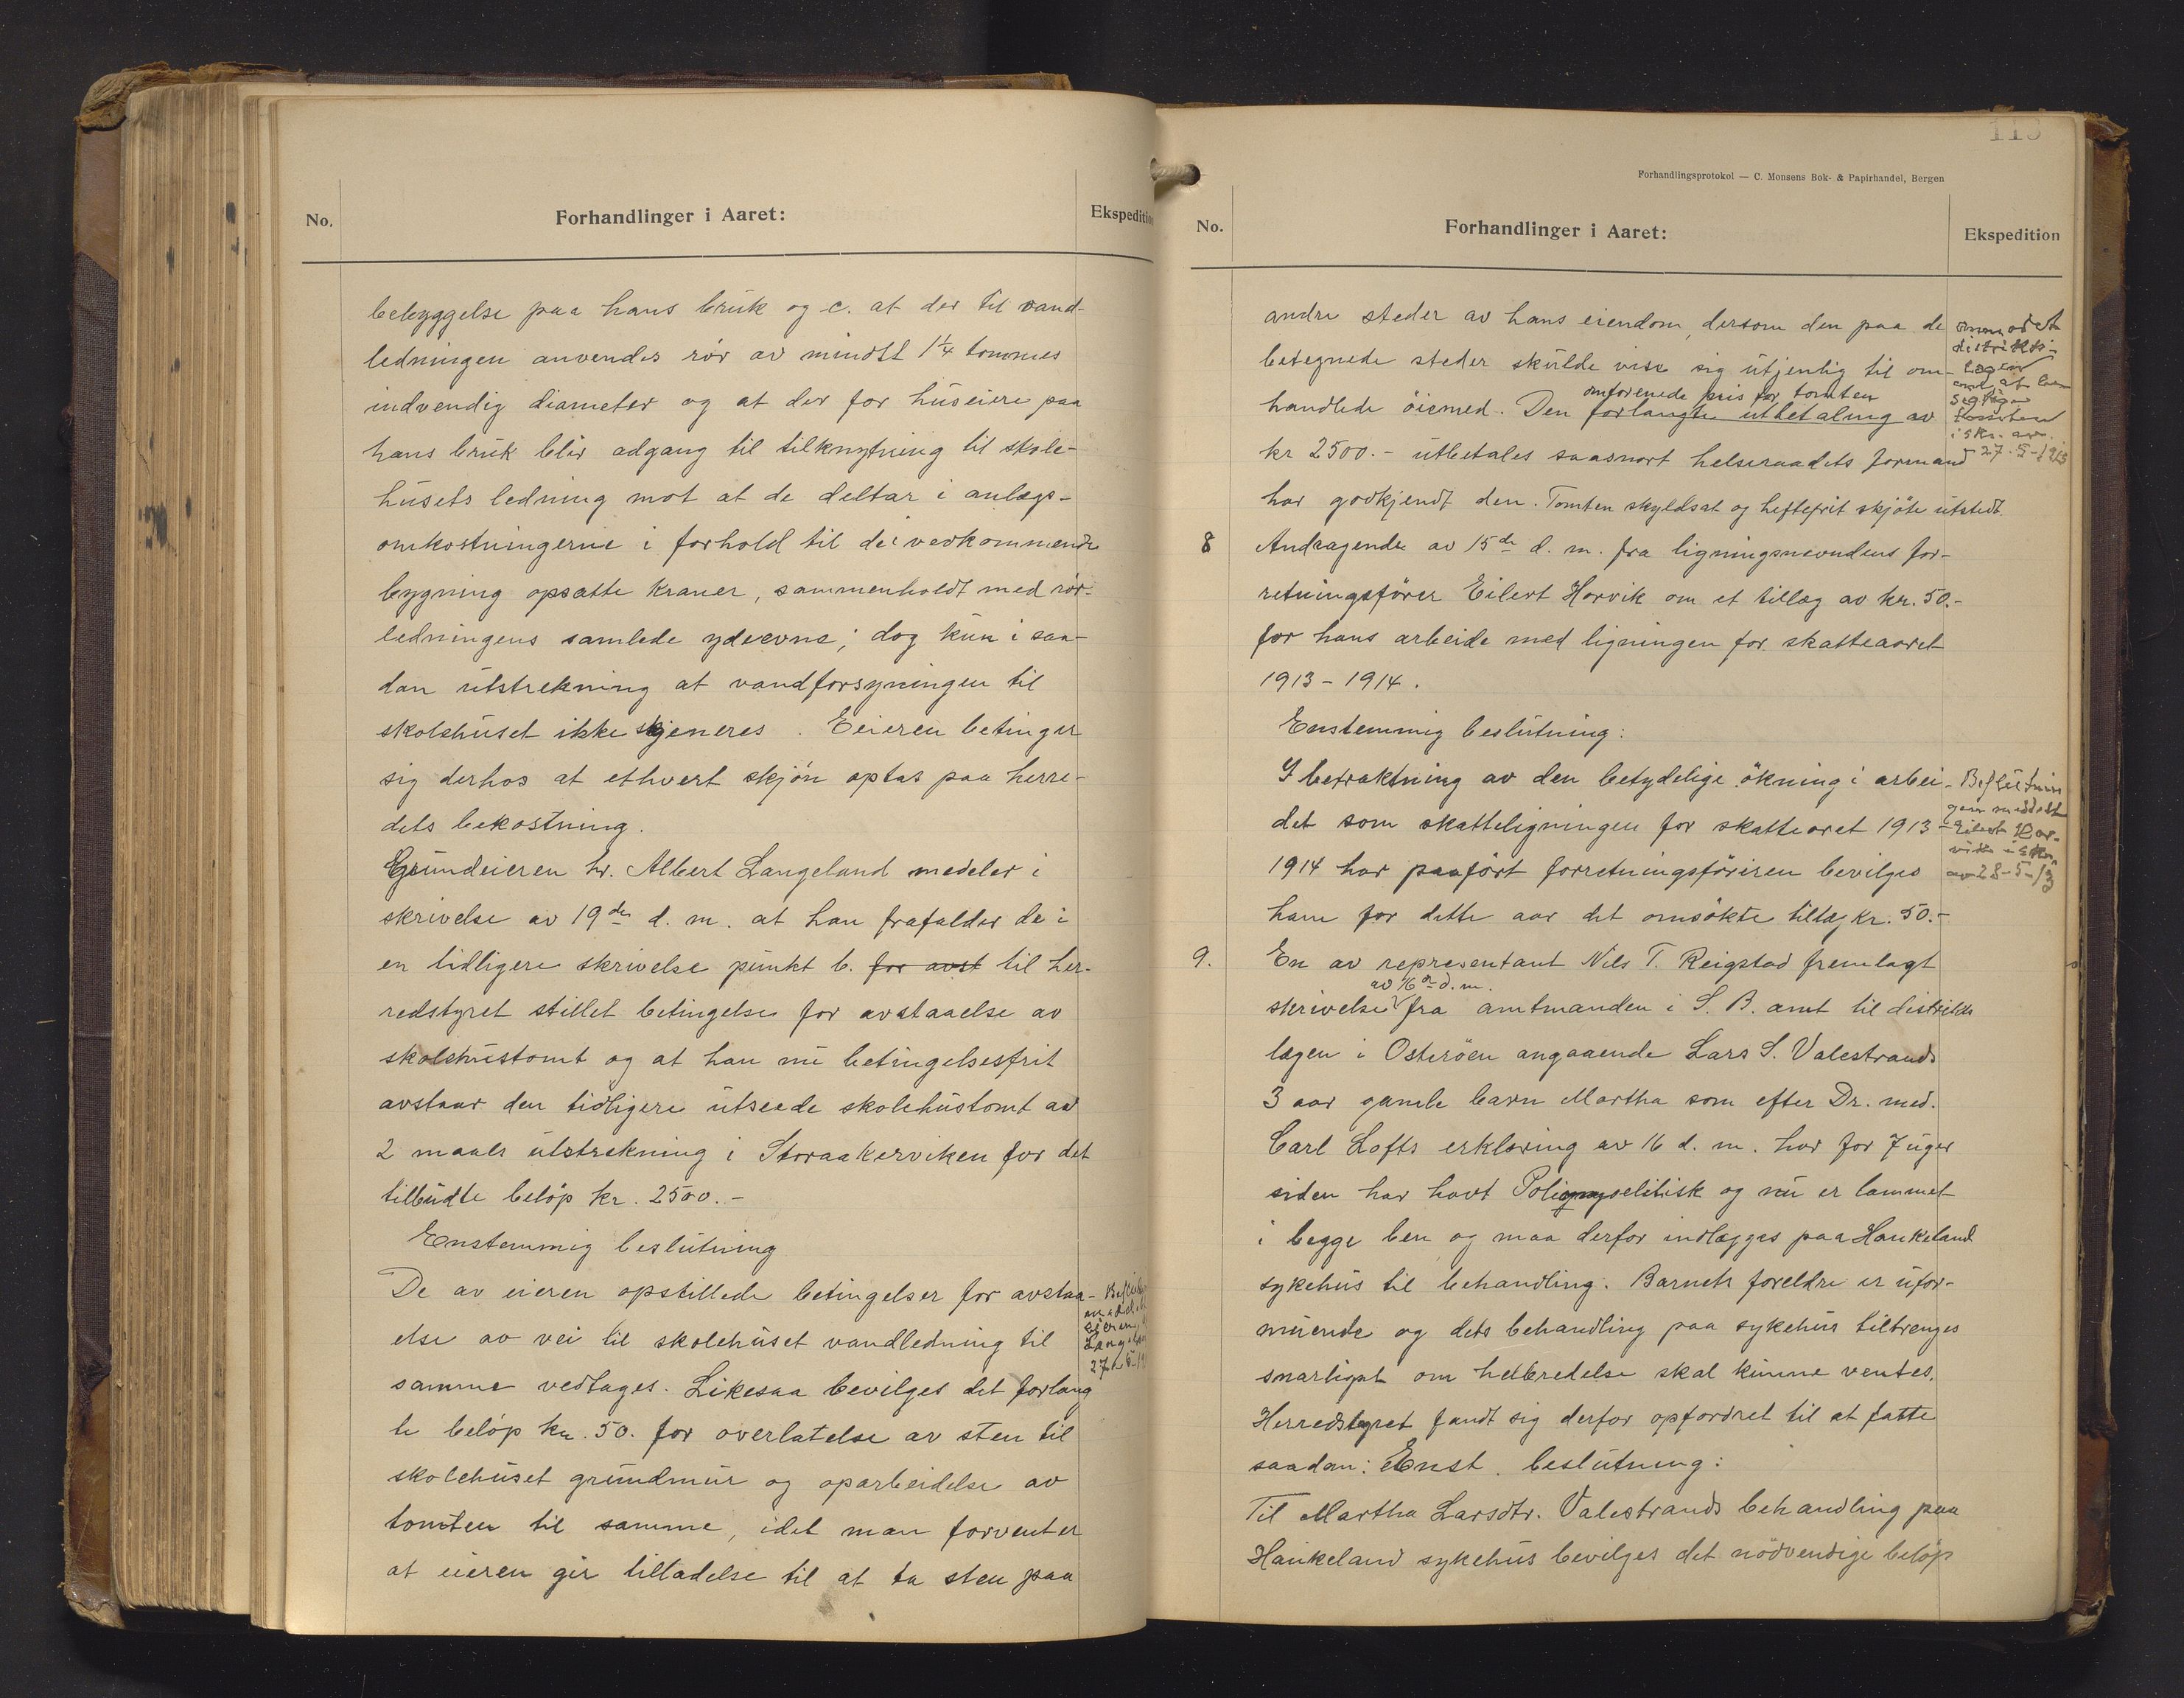 No.
Forhandlinger i Aaret:
Ekspeditio
bebyggelse paa hans bruk og c. at der til vand-
ledningen anvendes rör av mindst 1¼ tommes
indvendig diameter og at der for huseiere paa
hans bruk blir adgang til tilknytning til skole-
husets ledning mot at de deltar i anlægs-
omkostningerne i forhold til de i vedkommende
bygning opsatte kraner, sammenholdt med rör-
ledningens samlede ydeevne; dog kun i saa-
dan utstrekning at vandforsyningen til
skolehuset ikke sjeneres. Eieren betinger
sig derhos at ethvert skjön optas paa herre-
dets bekostning.
Grundeieren hr. Albert Langeland medeler i
skrivelse av 19de d. m. at han frafalder de i
en tidligere skrivelse punkt b. for avst til her-
redstyret stillet betingelse for avstaaelse av
skolehustomt og at han nu betingelsesfrit
avstaar den tidligere utseede skolehustomt av
2 maals utstrekning i Storaakerviken for det
tilbudte belöp kr. 2500.-
Enstemmig beslutning
De av eieren opstillede betingelser for avstaa-
else av vei til skolehuset vandledning til
samme vedtages. Likesaa bevilges det forlang
te belöp kr. 50. for overlatelse av sten til
skolehuset grundmur og oparbeidelse av
tomten til samme, idet man forventer
at eieren gir tilladelse til at ta sten paa
eieren
27
115
Forhandlingsprotokol — C. Monsens Bok- & Papirhandel, Bergen
No.
Forhandlinger i Aaret:
Ekspedition
andre steder av hans eiendom, dersom den paa de
betegnede steder skulde vise sig utjenlig til om-
omforenede pris for tomten
handlede öiemed. Den forlangte utbetaling av
kr 2500.- utbetales saasnart helseraadets formand
har godkjendt den. Tomten skyldsat og heftefrit skjöte utstedt
distrikts-
lægen
tomten
i skr. av
27-5-1913
8
Andragende av 15de d. m. fra ligningsnevndens for-
retningsförer Eilert Horvik om et tillæg av kr. 50.-
for hans arbeide med ligningen for skatteaaret
1913-1914.
Enstemmig beslutning:
I betraktning av den betydelige ökning i arbei-
det som skatteligningen for skattearet 1913-
1914 har paafört forretningsföreren bevilges
ham for dette aar det omsökte tillæg kr. 50.-
Beslutnin
gen meddelt
Eilert Hor-
vik i skr.
av 28-5-13
9.
En av representant Nils T. Reigstad fremlagt
av 16de d. m.
skrivelse fra amtmanden i S. B. amt til distrikts
lægen i Osteröen angaaende Lars S. Valestrands
3 aar gamle barn Martha som efter Dr. med.
Carl Lofts erklæring av 16 d. m. har for 7 uger
siden har havt Poliomyelitisk og nu er lammet
i begge ben og maa derfor indlægges paa Haukeland
sykehus til behandling. Barnets foreldre er ufor-
muende og dets behandling paa sykehus tiltrenges
snarligst om helbredelse skal kunne ventes.
Herredstyret fandt sig derfor opfordret til at fatte
saadan: Enst. beslutning:
Til Martha Larsdtr. Valestrands behandling paa
Haukeland sykehus bevilges det nödvendige belöp